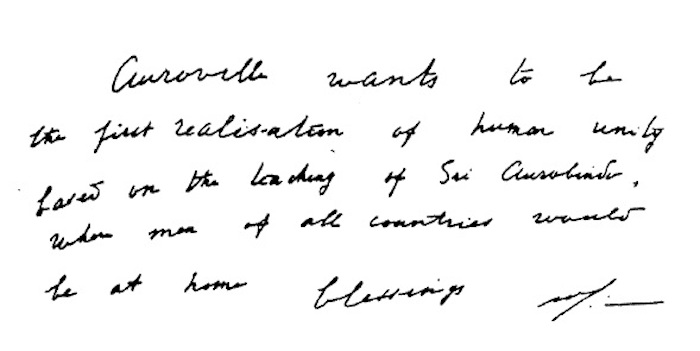 Auroville wants to be
the first realisation of human unity
based on the teaching of Sri Aurobindo,
where men of all countries would
be at home blessings